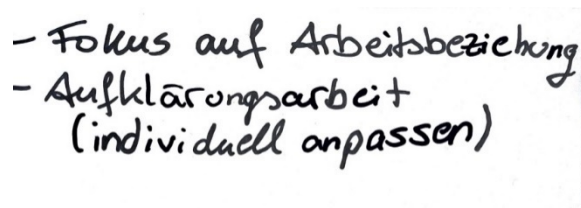 - Fokus auf Arbeitsbeziehung
- Aufklärungsarbeit
(individuell anpassen)